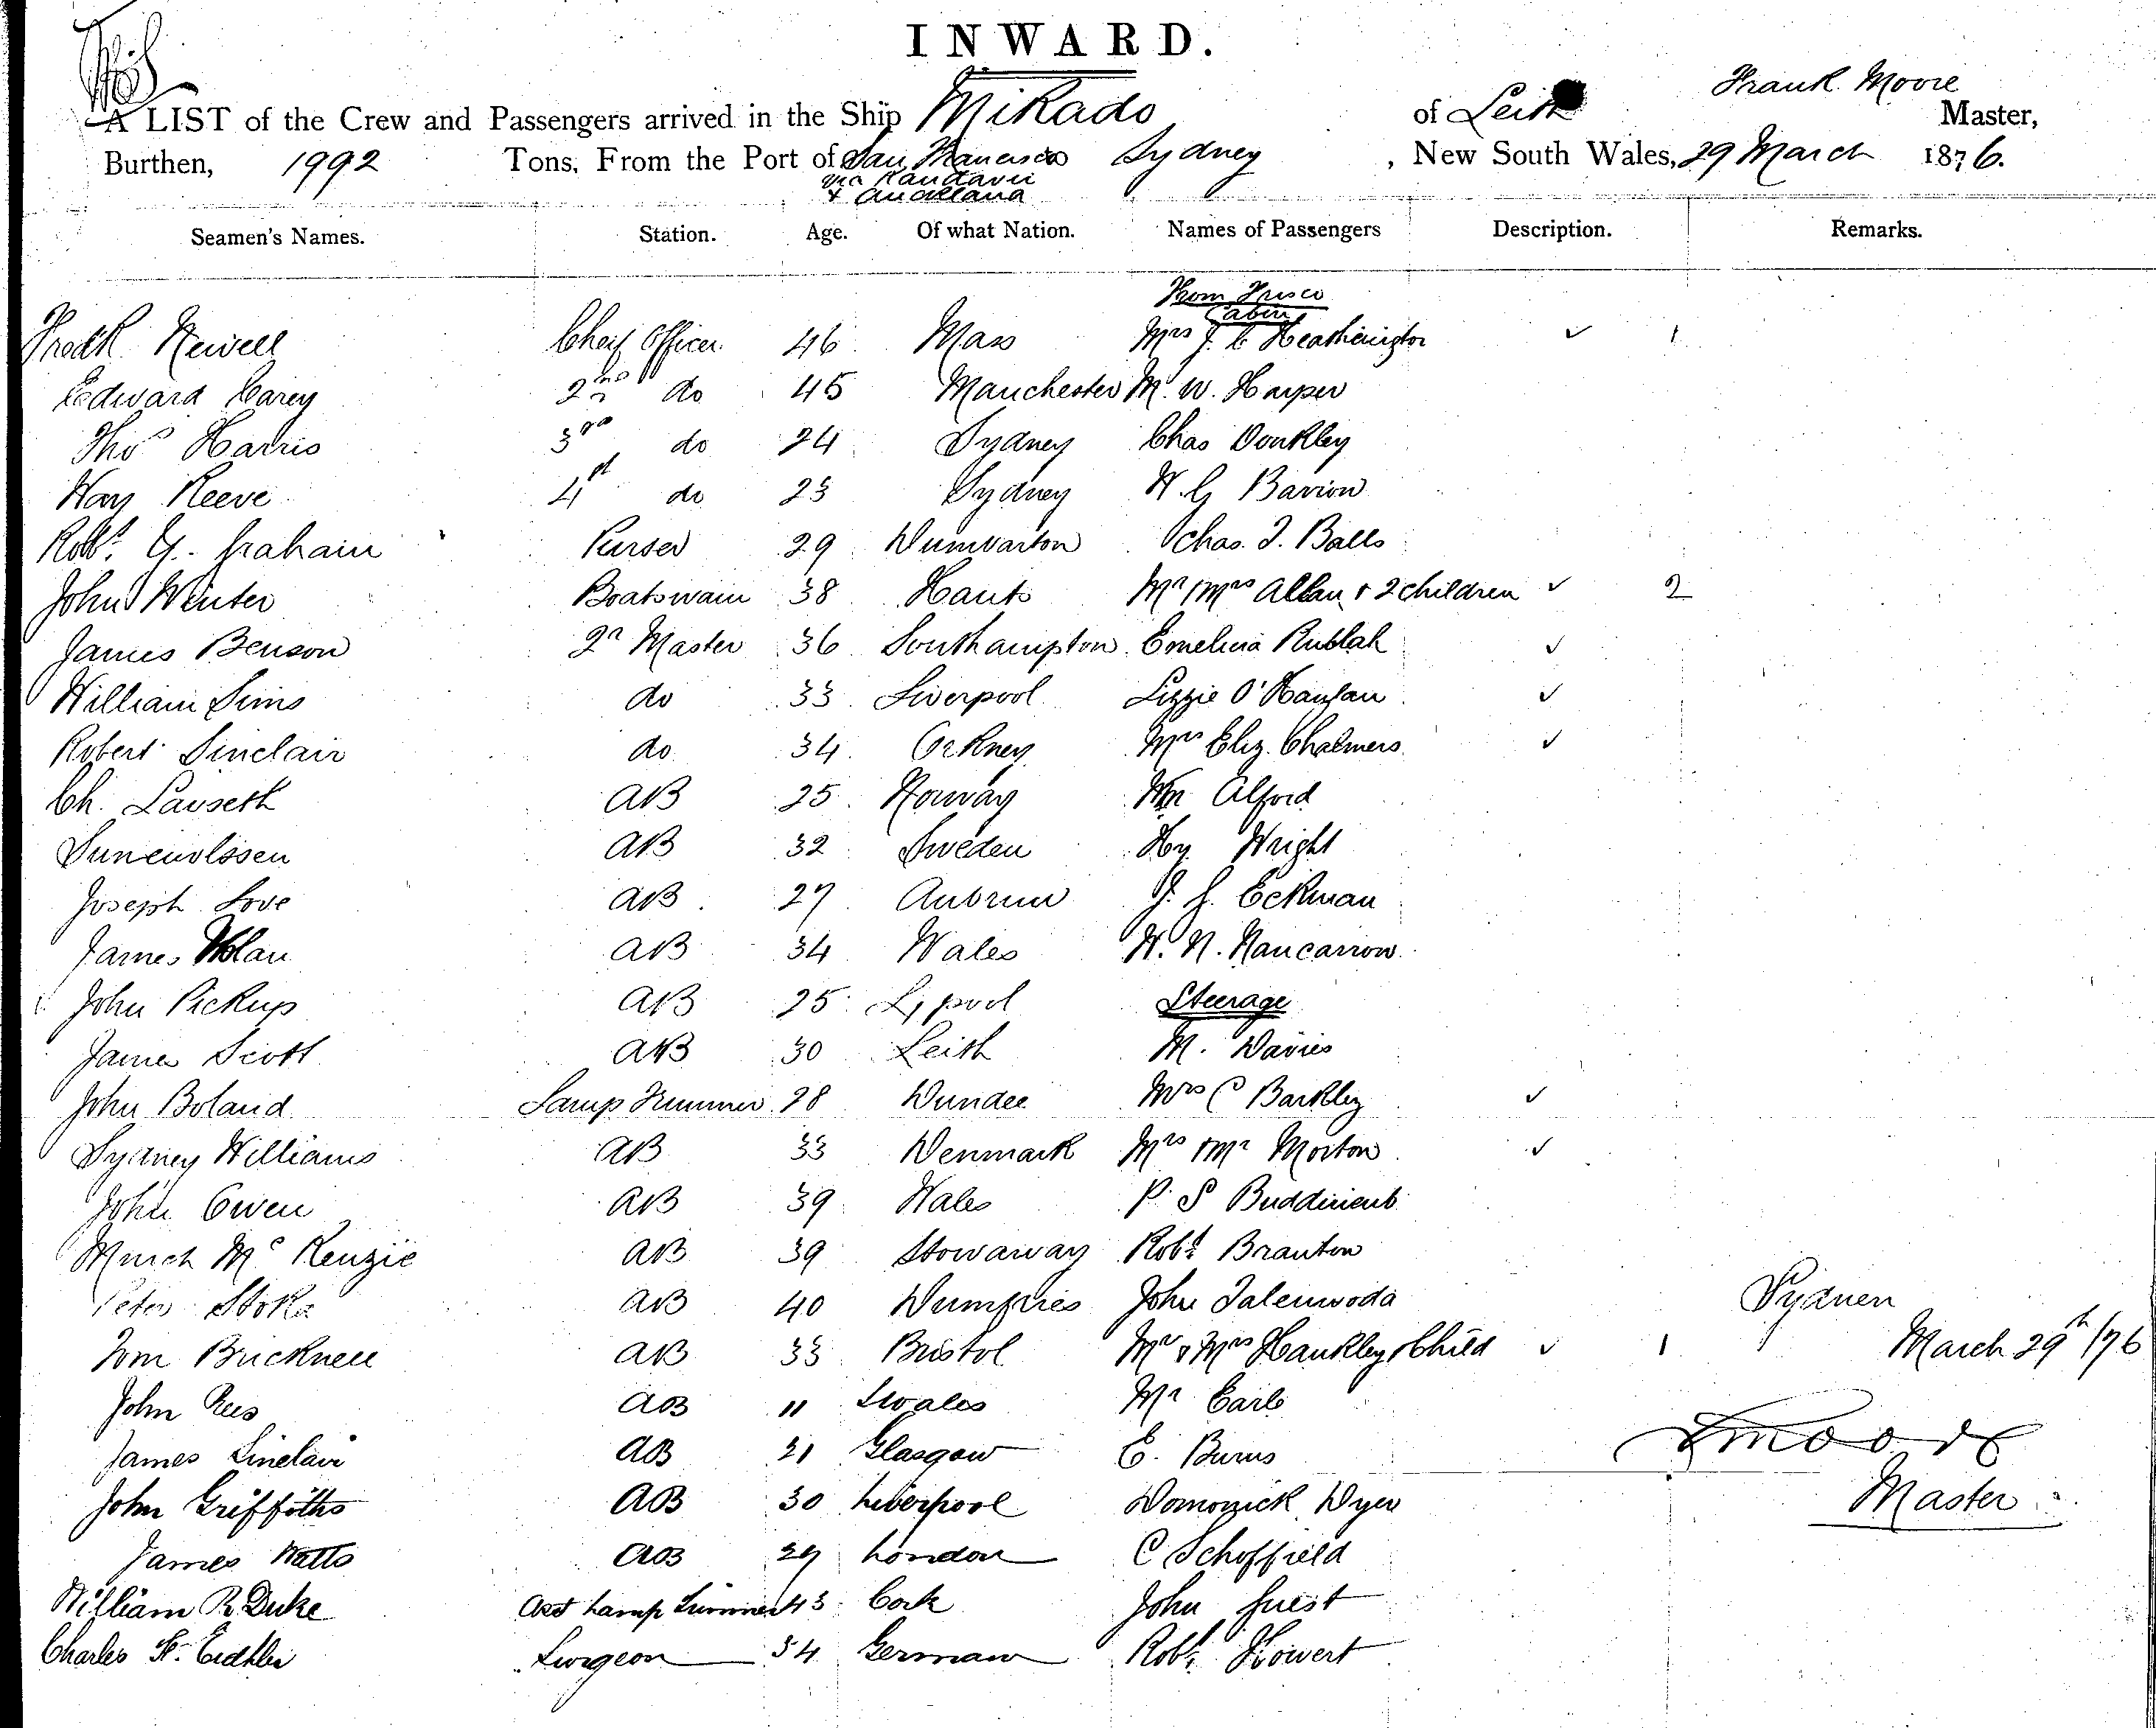 INWARD.
A LIST of the Crew and Passengers arrived in the Ship Mikado of Leith Frank Moore Master,
Burthen, 1992 Tons, From the Port of San Francisco Sydney, New South Wales, 29 March 1876.
via Kandavu
& Auckland
Seamen's Names. Station. Age. Of what Nation. Names of Passengers Description. Remarks.
From Frisco
Cabin
Fredk Newell Cheif Officer 46 Mass Mrs J. C Heatherington ✓ 1
Edward Carey 2nd do 45 Manchester M. W. Harper
Thos Harris 3rd do 24 Sydney Chas Donkley
Hay Reeve 4 do 23 Sydney W. G Barion
Robt. G. Graham Purser 29 Dumbarton Chas. J. Balls
John Winter Boatswain 38 Hants Mr / Mrs Allan & 2 children ✓ 2
James Benson Qr Master 36 Southampton Rublah ✓
William Sims do 33 Liverpool Lizzie O'Hanlan ✓
Robert Sinclair do 34 Orkney Mrs Eliz. Chalmers ✓
Ch. Lavseth AB 25 Norway Wm Alford
AB 32 Sweden Hy. Wright
Joseph Love AB 27 J. J. Eckman
James Nolan AB 34 Wales W. N. Nancarrow
John Pickup AB 25 L'pool Steerage
James Scott AB 30 Leith M. Davies
John Boland Lamp Trimmer 28 Dundee Mrs C Barkley ✓
Sydney Williams AB 33 Denmark Mrs & Mr Morton ✓
John Owen AB 39 Wales P. S
Murch Mc Kenzie AB 39 Stowaway Robt Branton
Peter Stoke AB 40 Dumfries John Sydney
Tom Bricknell AB 33 Bristol Mr & Mrs Hankley & Child ✓ 1 March 29th /76
John Rees AB " Swales Mr Earle
James Sinclair AB 21 Glasgow E. Burns FMoore
John Griffiths AB 30 Liverpool Domonick Dyer Master
James Watts AB 29 London C Schoffield
William R. Duke Asst Lamp Trimmer 43 Cork John Guest
Charles Surgeon 34 German Robt. Howert